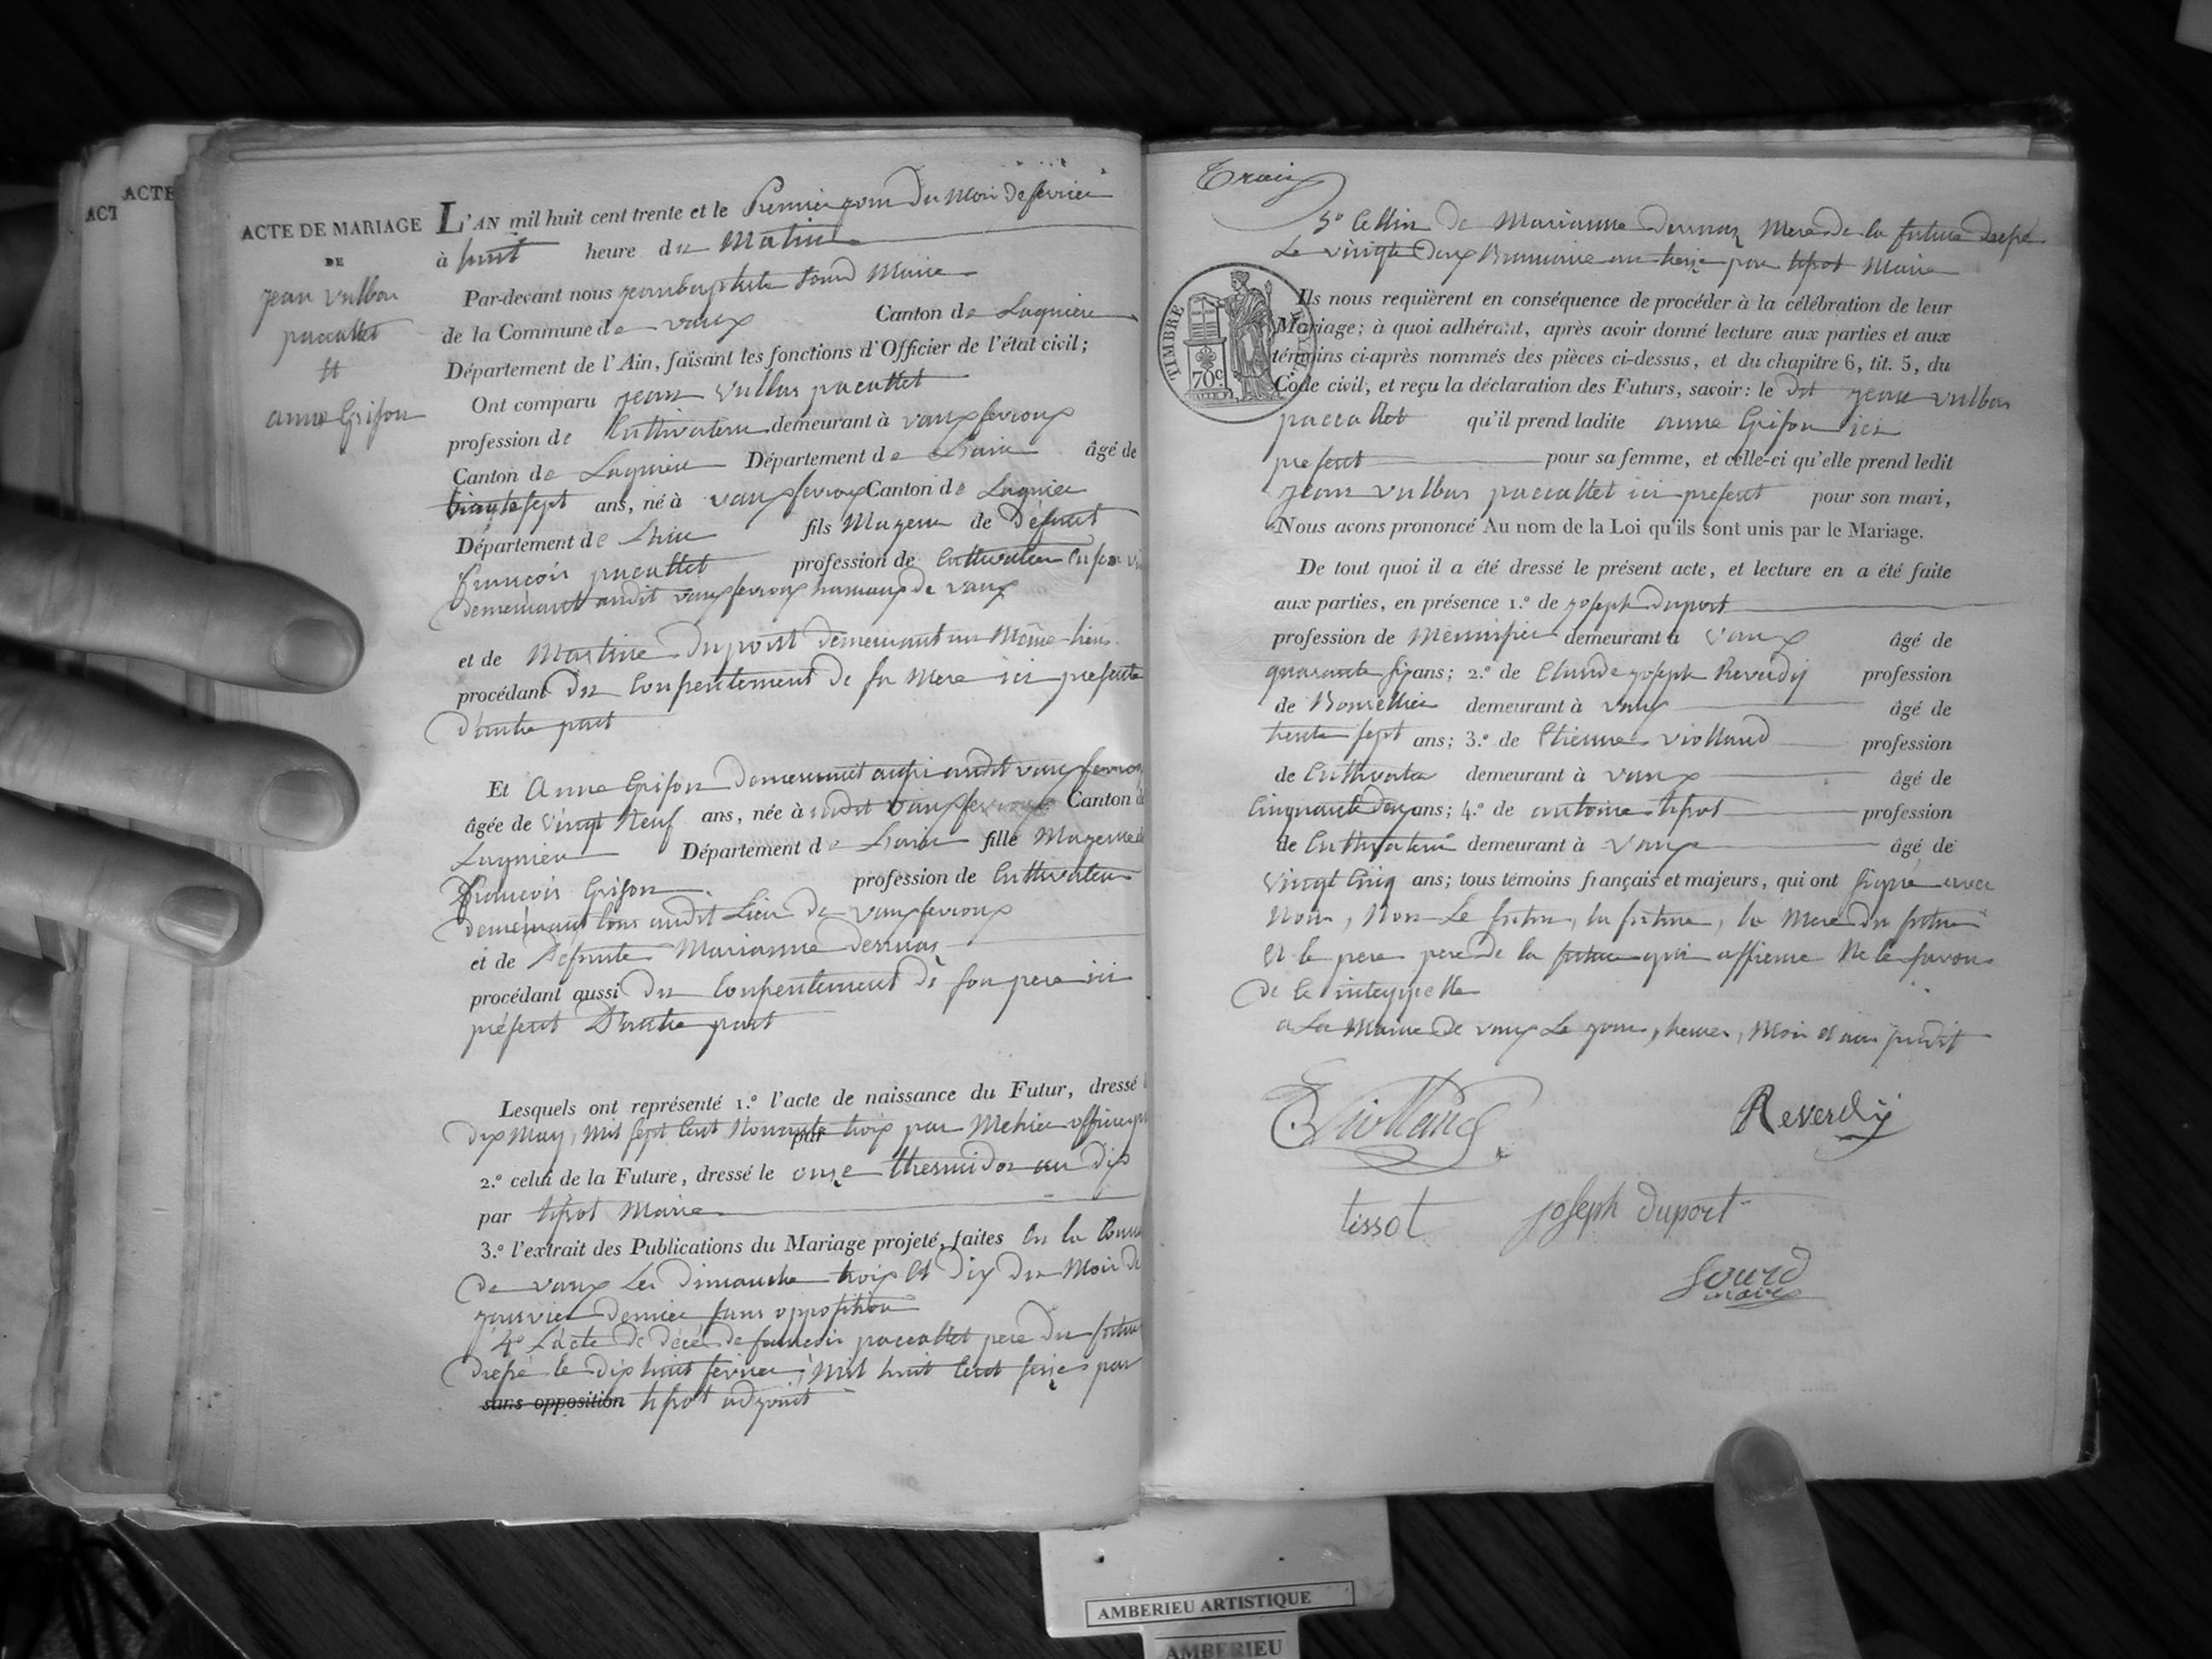 ACTE
ACT
ACTE DE MARIAGE
DE
jean vulbas
paccallet
et
anne Grison
L'AN mil huit cent trente et le Premier jour Du Mois De fevrier
à huit heure du Matin
Par-devant nous jeanbaptiste Sourd Maire
de la Commune de vaux Canton de Lagnieu
Département de l'Ain, faisant les fonctions d'Officier de l'état civil;
Ont comparu jean vulbas pacallet
profession de Cultivateur demeurant à vauxfevroux
Canton de Lagnieu Département de Lain âgé de
ans, né à vauxfevroux Canton de Lagnieu
Département de Lain fils Mageur de Défunt
francois pacallet profession de Cultivateur
demeurant audit vauxfevroux hameaux de vaux
et de Martine Duport demeurant au Même lieu
procédant Du Consentement De sa Mere ici presente
D'autre part
Et Anne Grison Demeurant aussi audit vauxfevroux
âgée de Vingt Neuf ans, née à audit vauxfevroux Canton de
Lagnieu Département de Lain fille Mageure de
francois Grison profession de Cultivateur
demeurant audit Lieu de vauxfevroux
et de Défunte Marianne dernas
procédant aussi Du Consentement De son pere ici
présent D'autre part
Lesquels ont représenté 1.º l'acte de naissance du Futur, dressé
dix May, Mil sept Cent Nonente trois par
par
2.º celui de la Future, dressé le onze thermidor an dix
par tissot Maire
3.º l'extrait des Publications du Mariage projeté, faites En la
de vaux Les Dimanche trois et Dix Du Mois De
janvier Dernier sans opposition
4º L'acte De décé De francois paccallet pere Du futur
Dressé le Dix huit fevrier Mil huit Cent seize par
sans opposition tissot adjoint
5º Celluy De Marianne dernaz Mere de la future dressé
Le vingte Deux Brumaire an treize par tissot Maire
TIMBRE
70c
Ils nous requièrent en conséquence de procéder à la célébration de leur
Mariage; à quoi adhérant, après avoir donné lecture aux parties et aux
témoins ci-après nommés des pièces ci-dessus, et du chapitre 6, tit. 5, du
Code civil, et reçu la déclaration des Futurs, savoir: le dit jean vulbas
paccallet qu'il prend ladite anne Grison ici
present pour sa femme, et celle-ci qu'elle prend ledit
jean vulbas paccallet ici present pour son mari,
Nous avons prononcé Au nom de la Loi qu'ils sont unis par le Mariage.
De tout quoi il a été dressé le présent acte, et lecture en a été faite
aux parties, en présence 1.º de joseph duport
profession de Menuisier demeurant à vaux âgé de
quarante six ans; 2.º de Claude joseph Reverdy profession
de Bourellier demeurant à vaux âgé de
trente sept ans; 3.º de Etienne violland profession
de Cultivateur demeurant à vaux âgé de
Cinquante Deux ans; 4.º de antoine tissot profession
de Cultivateur demeurant à vaux âgé de
vingt Cinq ans; tous témoins français et majeurs, qui ont signé avec
Nous, Non Le futur, la future, la Mere du futur
et le pere de la future qui affirme Ne le savoir
de ce interppellé
a La Mairie De vaux Le jour, heures, Mois et an susdit
Violland
Reverdy
tissot
joseph duport
Sourd
maire
AMBERIEU ARTISTIQUE
AMBERIEU